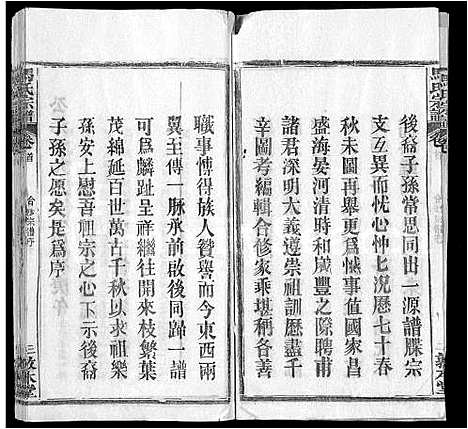 後裔子孫常思同出一源譜牒宗
支互異而忧心忡七況歷七十春
秋未圖再舉更爲憾事值國昌
盛海晏河清時和歲豐之際聘甫
諸君深明大義遵崇祖訓歷盡千
辛圖考編輯合修家乘堪稱
職事博得族人贊譽而今東西兩
翼王傳一脈承前啟後同歸一譜
可為麟趾呈祥繼往開來枝繁葉
茂綿延百世萬古千秋以求祖樂
孫安上慰吾祖宗之心下示後裔
子孫之愿矣是爲序
馬氏宗譜
卷首
三
敦本堂